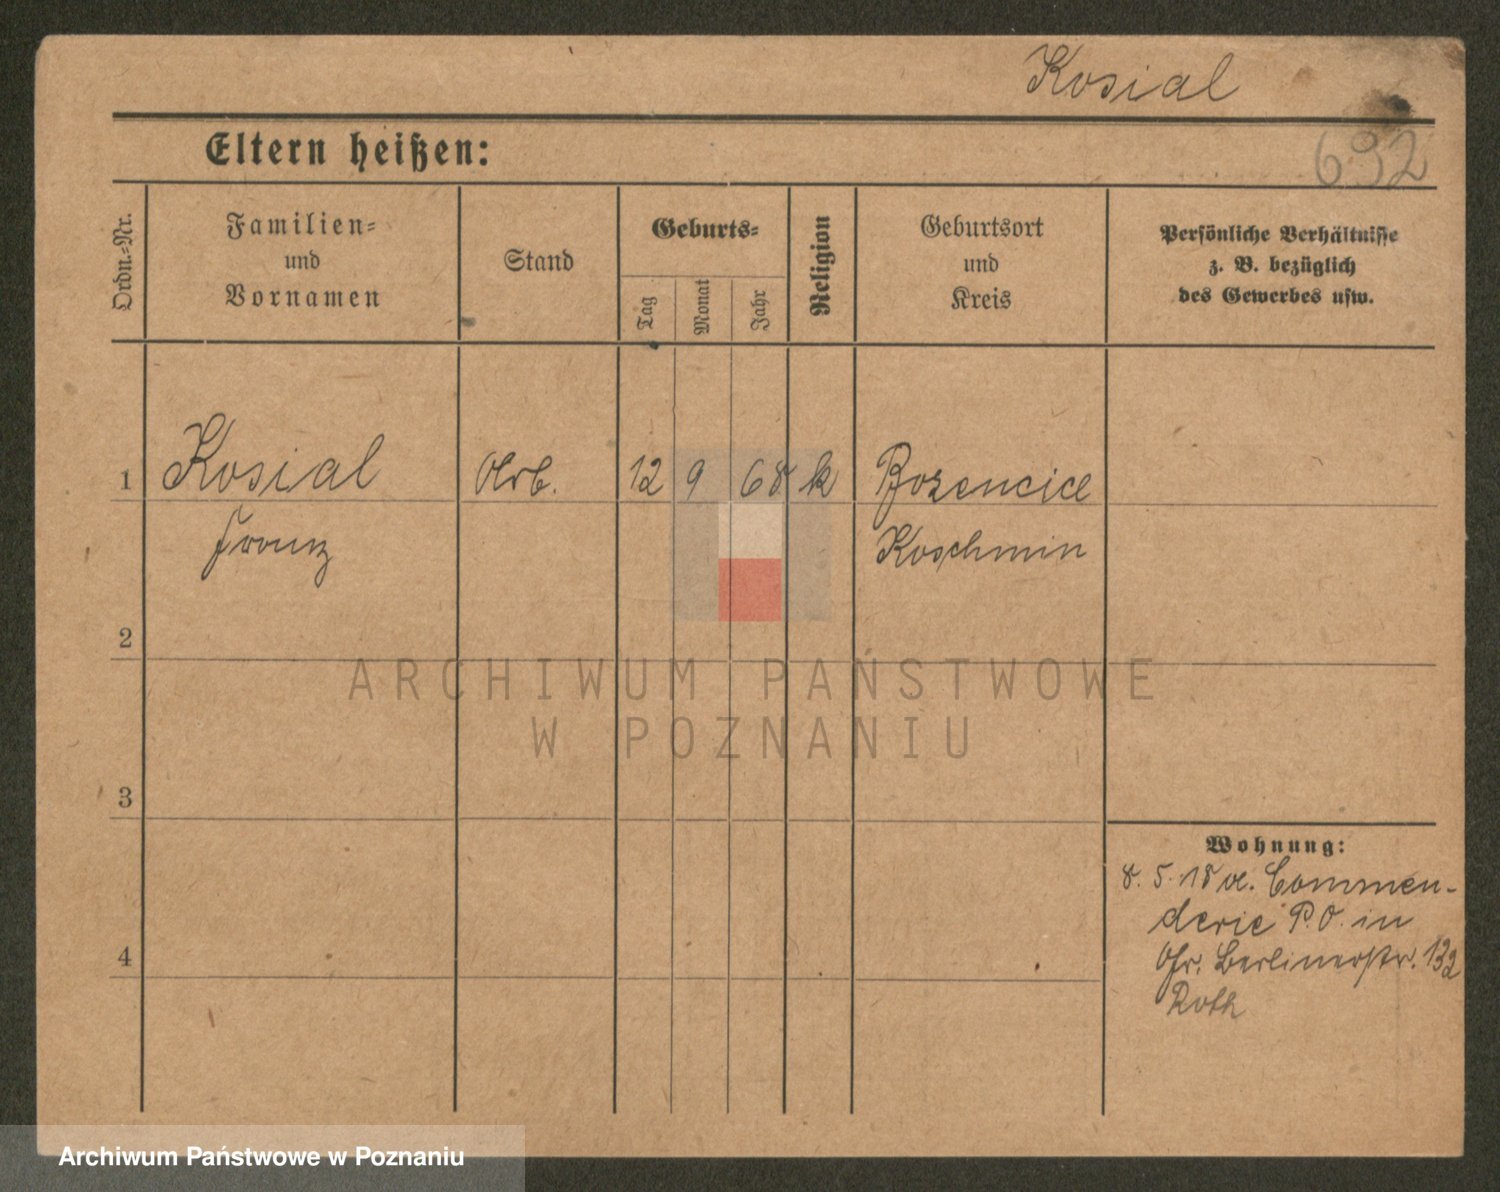 Kosial
Eltern heißen:
692
Ordn.-Nr.
Familien-
und
Vornamen
Stand
Geburts-
Tag
Monat
Jahr
Religion
Geburtsort
und
Kreis
Persönliche Verhältnisse
z. B. bezüglich
des Gewerbes usw.
1 Kosial Arb. 12 9 68 k Bozencice
Franz Koschmin
2
ARCHIWUM PAŃSTWOWE
W POZNANIU
3
Wohnung:
8. 5. 18 Commen-
derie P.O. in
Gr. Berlinerstr. 132
Roth
4
Archiwum Państwowe w Poznaniu